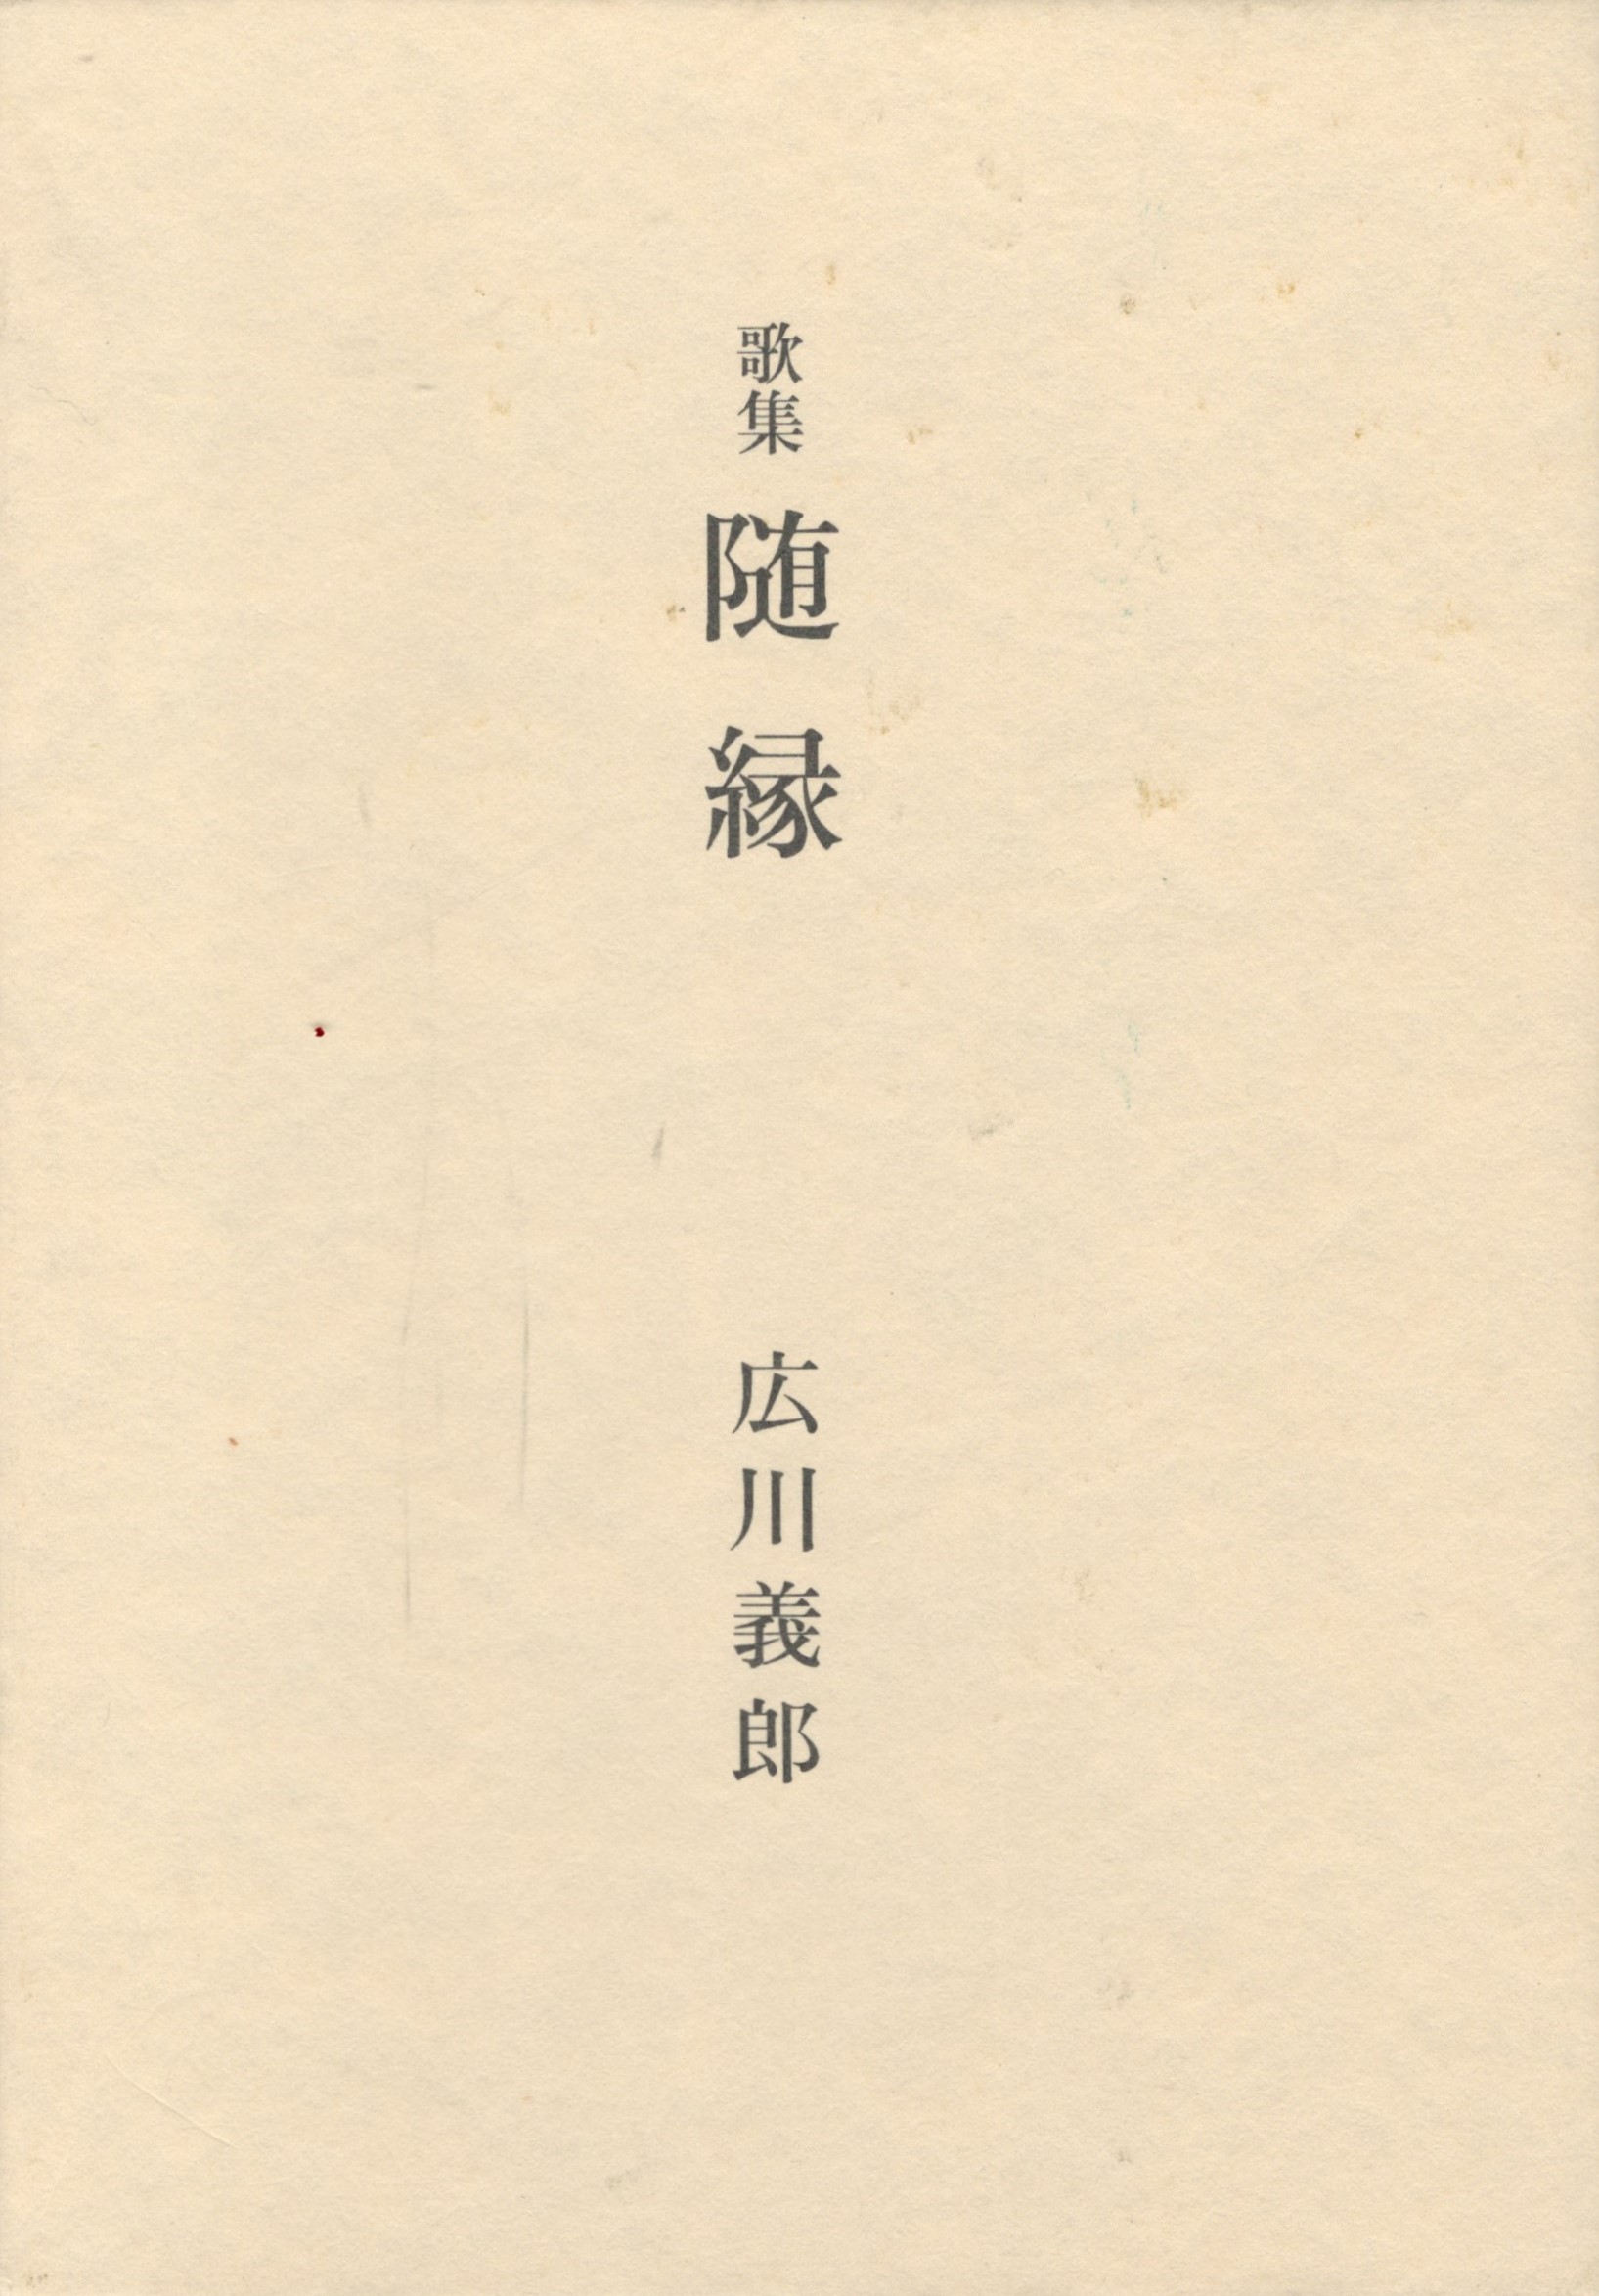 歌集 随縁
広川義郎